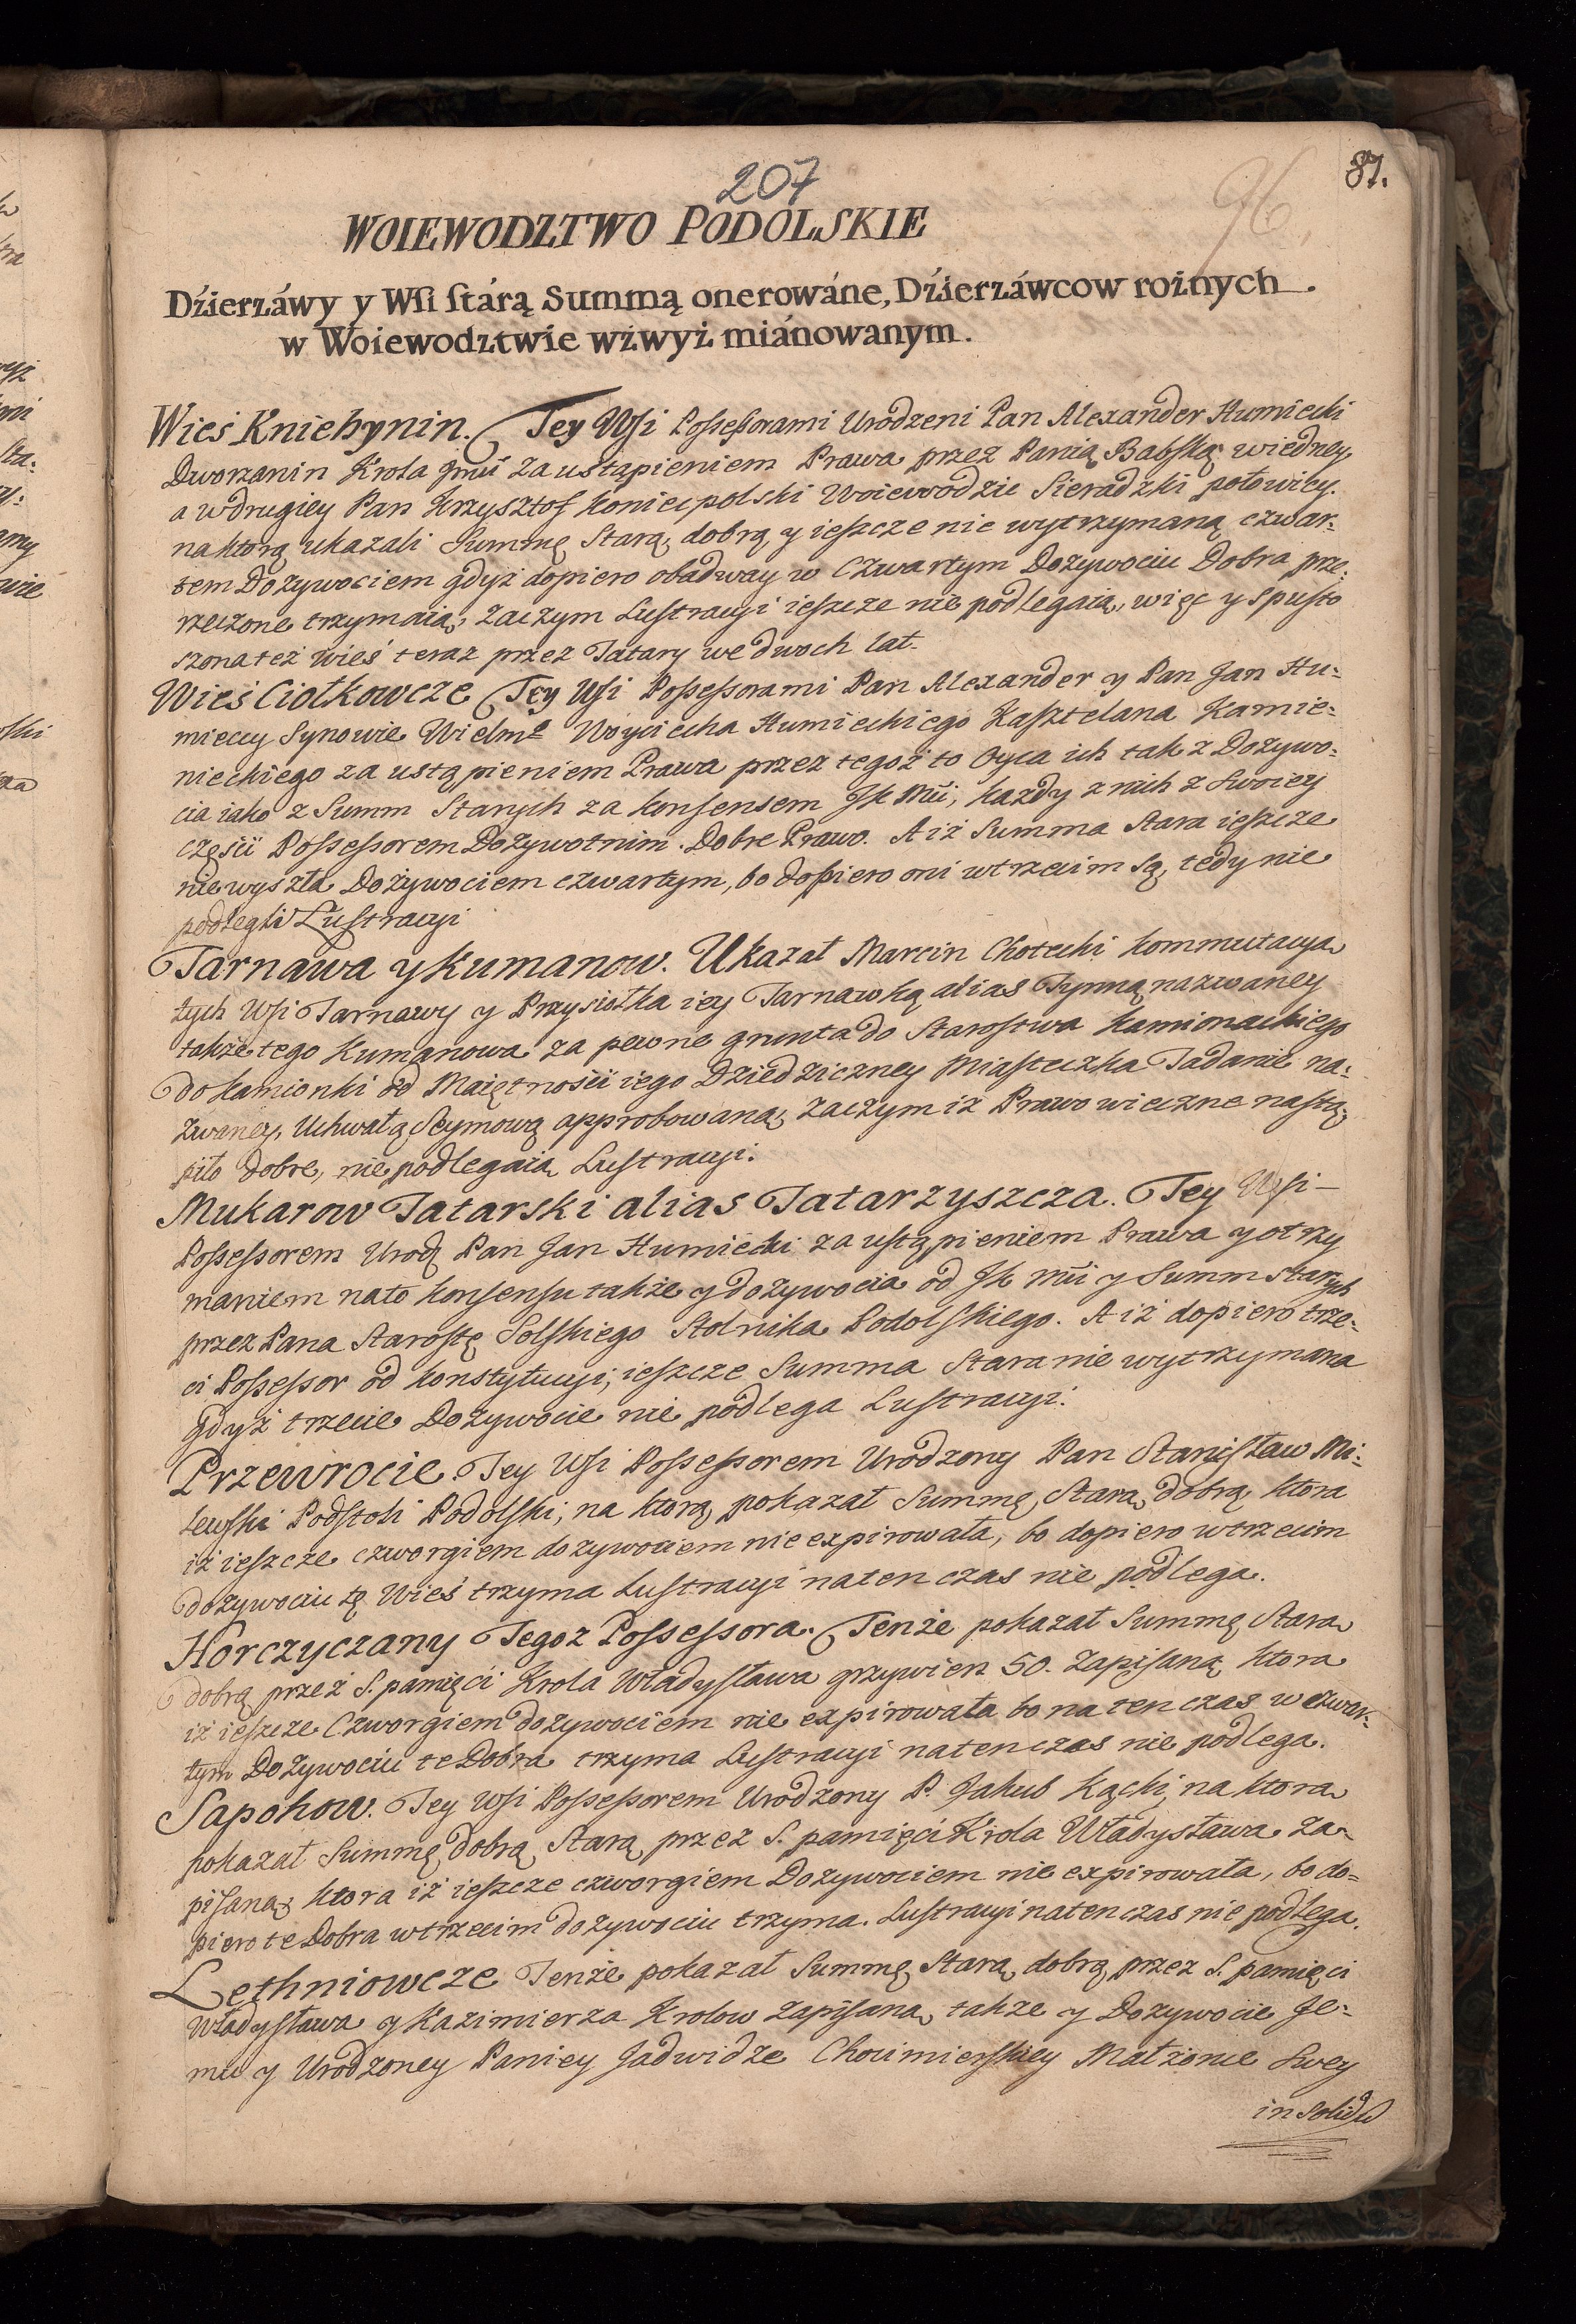 207
96.
81.
WOIEWODZTWO PODOLSKIE
Dźierzáwy y Wśi stárą Summą onerowáne, Dźierzáwcow rożnych
w Woiewodztwie wzwyż miánowanym.
Wieś Kniehynin. Tey Wsi Possessorami Urodzeni Pan Alexander Humiecki
Dworzanin Krola Jmsi za ustąpieniem Prawa przez Panią Babską wiedney
a wdrugiey Pan Krzysztof Koniecpolski Woiewodzic Sieradzki połowicy.
naktorą ukazali Summę Starą, dobrą y ieszcze nie wytrzymaną czwar:
tem Dożywociem gdyż dopiero obadway w Czwartym Dożywociu Dobra prze:
rzeczone trzymaią, zaczym Lustracyi ieszcze nie podlegaią, więc y spusto
szona też Wieś teraz przez Tatary we dwoch lat.
Wieś Ciołkowcze Tey Wsi Possessorami Pan Alexander y Pan Jan Hu:
mieccy Synowie Wielmo Woyciecha Humieckiego Kasztelana Kamie:
nieckiego za ustąpieniem Prawa przez tegoż to Oyca ich tak z Dożywo:
cia iako z Summ Starych za konsensem JK Mći, każdy z nich z swoiey
części Possessorem Dożywotnim. Dobre Prawo. A iż Summa Stara ieszcze
nie wyszła Dożywociem czwartym, bo dopiero oni wtrzecim są, tedy nie
podlegli Lustracyi
Tarnawa y Kumanow. Ukazał Marcin Chotecki kommutacyą
tych Wsi Tarnawy y Przysiołka iey Tarnawką alias Tynną nazwaney
także tego Kumanowa za pewne grunta do Starostwa Kamionackiego
do Kamionki od Maiętności iego Dziedziczney Miasteczka Tadanie na:
zwaney, Uchwałą Seymową approbowaną, zaczym iż Prawo wieczne nastą:
piło dobre, nie podlegaią Lustracyi.
Mukarow Tatarski alias Tatarzyszcza. Tey Wsi
Possessorem Urodz Pan Jan Humiecki za ustąpieniem Prawa y otrzy
maniem nato konsensu także y dożywocia od JK Mći y Summ starych
przez Pana Starostę Solskiego Stolnika Podolskiego. A iż dopiero trze:
ci Possessor od Konstytucyi, ieszcze Summa Stara nie wytrzymana
gdyż trzecie Dożywocie nie podlega Lustracyi.
Przewrocie. Tey Wsi Possessorem Urodzony Pan Stanisław Ma:
lewski Podstoli Podolski, na ktorą pokazał Summę Starą dobrą ktora
iż ieszcze czworgiem dożywociem nie expirowała, bo dopiero wtrzecim
dożywociu tę Wieś trzyma Lustracyi naten czas nie podlega.
Horczyczany Tegoż Possessora. Tenże pokazał Summę Starą
dobrą przez S. pamięci Krola Władysława grzywien 50. Zapisaną ktora
iż ieszcze Czworgiem dożywociem nie expirowała bo na ten czas w czwar:
tym Dożywociu te Dobra trzyma Lustracyi naten czas nie podlega.
Sapohow. Tey Wsi Possessorem Urodzony P. Jakub Kącki, na ktorą
pokazał Summę dobrą Starą przez S. pamięci Krola Władysława za:
pisaną, ktora iż ieszcze czworgiem Dożywociem nie expirowała, bo do:
piero te Dobra wtrzecim dożywociu trzyma. Lustracyi naten czas nie podlega.
Lethniowcze Tenże pokazał Summę Starą dobrą przez S. pamięci
Władysława y Kazimierza Krolow Zapisaną także y Dożywocie Je:
mu y Urodzoney Paniey Jadwidze Chocimierskiey Małżonce Swey
in solidu